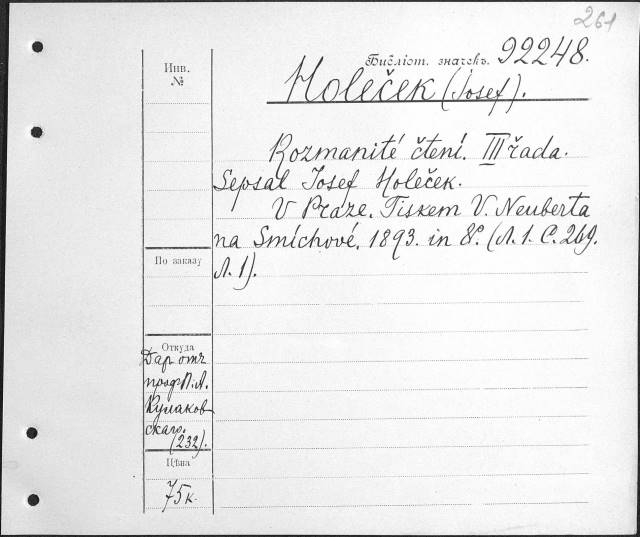 261
Библіот. значекъ. 92248.
Инв.
№
Holeček (Josef).
Rozmanité čtení. III řada.
Sepsal Josef Holeček.
V Praze. Tiskem V. Neuberta
na Smíchově. 1893. in 8º. (Л. 1. С. 269.
Л. 1).
По заказу
Откуда
Даръ отъ
проф. П. А.
Кулаков
скаго.
(232).
Цѣна
75 к.